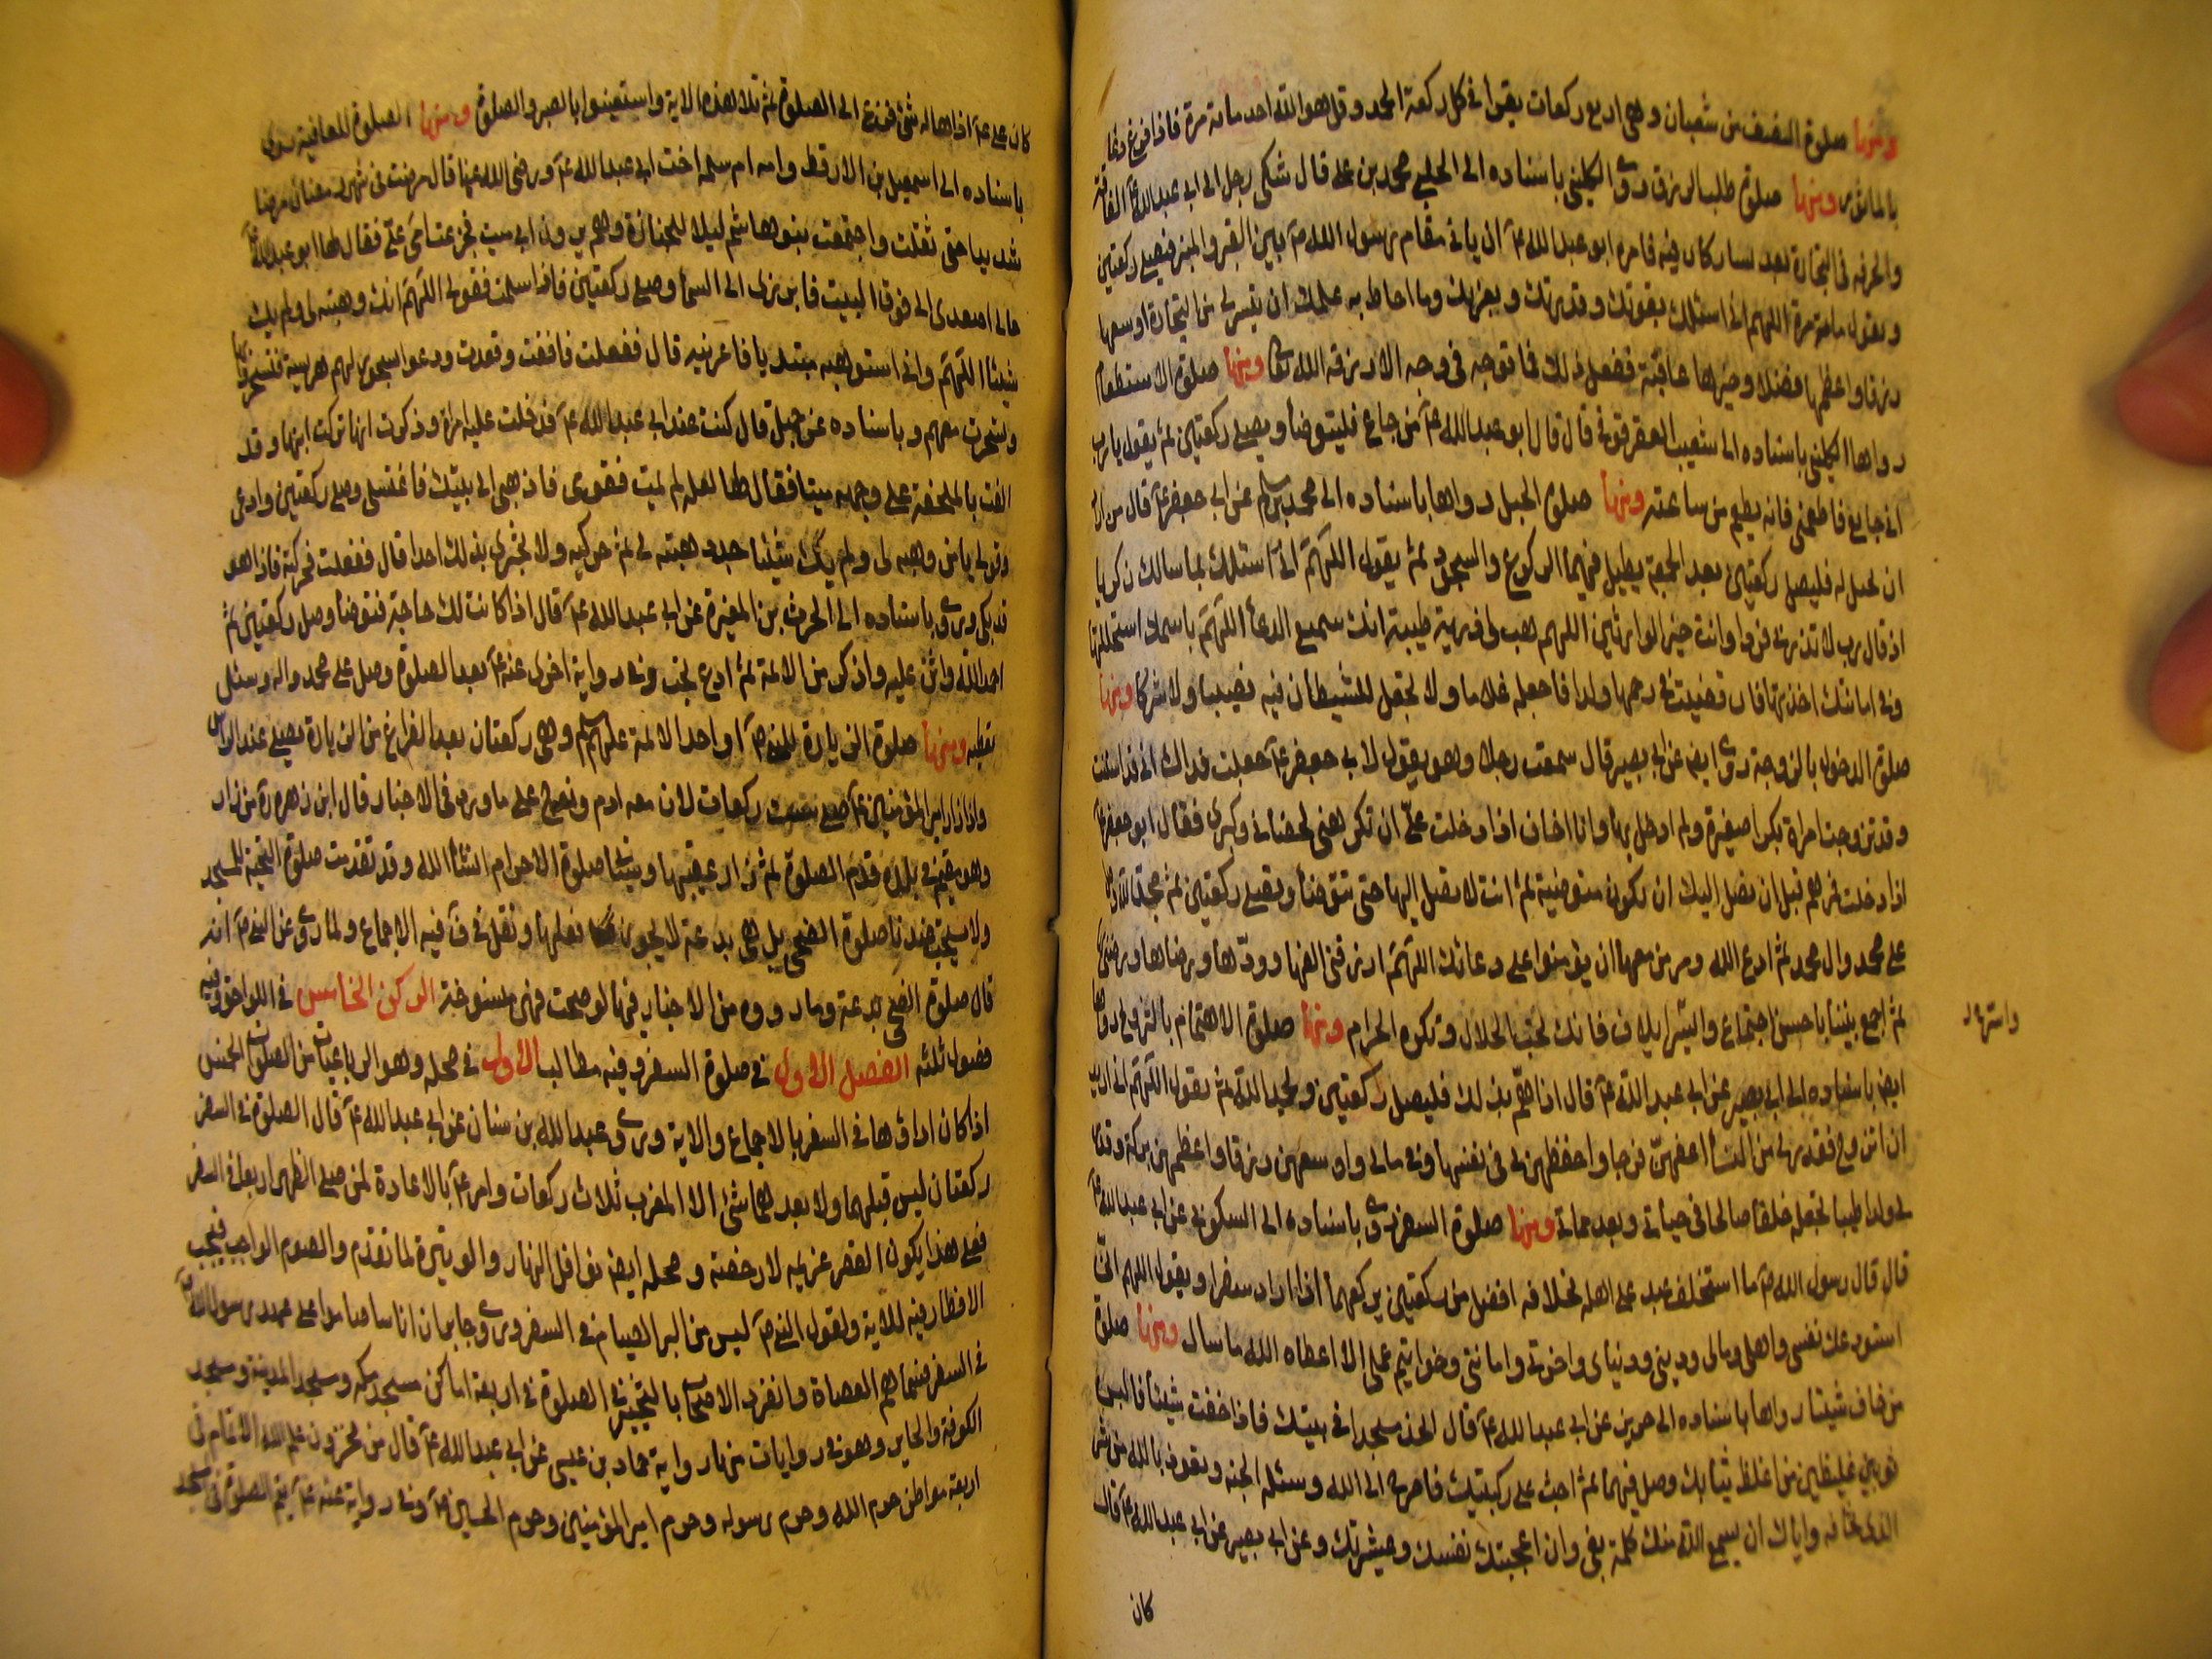 ومنها صلوة النصف من شعبان وهى اربع ركعات يقرا فى كل ركعة الحمد وقل هو الله احد مائة مرة فاذا فرغ دعا
بالماثور ومنها صلوة طلب الرزق روى الكلينى باسناده الى الحلبى محمد بن على قال شكى رجل الى ابى عبدالله ع الفاقة
والحرفة فى التجارة بعد يسار كان فيه فامره ابو عبدالله ع ان ياتى مقام رسول الله ص بين القبر والمنبر فيصلى ركعتين
ويقول مائة مرة اللهم انى اسئلك بقوتك وقدرتك وبعزتك وما احاط به علمك ان تيسر لى من التجارة اوسعها
رزقا واعظمها فضلا وخيرها عاقبة ففعل ذلك فما توجه فى وجه الا رزقه الله تعا ومنها صلوة الاستطعام
رواها الكلينى باسناده الى شعيب العقرقوفى قال قال ابو عبدالله ع من جاع فليتوضأ ويصلى ركعتين ثم يقول يا رب
انى جايع فاطعمنى فانه يطعم من ساعته ومنها صلوة الحبل رواها باسناده الى محمد بن مسلم عن ابى جعفر ع قال من اراد
ان يحبل له فليصل ركعتين بعد الجمعة يطيل فيهما الركوع والسجود ثم يقول اللهم انى اسئلك بما سالك زكريا
اذ قال رب لا تذرنى فردا وانت خير الوارثين اللهم هب لى ذرية طيبة انك سميع الدعا اللهم باسمك استحللتها
وفى امانتك اخذتها فان قضيت فى رحمها ولدا فاجعله غلاما ولا تجعل للشيطان فيه نصيبا ولا شركا ومنها
صلوة الدخول بالزوجة روى ايض عن ابى بصير قال سمعت رجلا وهو يقول لابى جعفر ع جعلت فداك انى قد اسننت
وقد تزوجت امراة بكرا صغيرة ولم ادخل بها وانا اخاف اذا دخلت على ان تكرهنى لخضابى وكبرى فقال ابو جعفر ع
اذا دخلت فمرهم قبل ان تصل اليك ان تكون متوضئة ثم انت لا تصل اليها حتى تتوضأ وتصلى ركعتين ثم مجد الله وصل
على محمد وال محمد ثم ادع الله ومر من معها ان يؤمنوا على دعائك اللهم ارزقنى الفها وودها ورضاها ورضنى
ثم اجمع بيننا باحسن اجتماع وايسر ايتلاف فانك تحب الحلال وتكره الحرام ومنها صلوة الاهتمام بالتزويج رواها
واسترها
ايض باسناده الى ابى بصير عن ابى عبد الله ع قال اذا هم بذلك فليصل ركعتين ويحمد الله ثم يقول اللهم انى اريد
ان اتزوج فقدر لى من النسأ اعفهن فرجا واحفظهن لى فى نفسها وفى مالى واوسعهن رزقا واعظمهن بركة وقدر
لى ولدا طيبا تجعله خلفا صالحا فى حياتى وبعد مماتى ومنها صلوة السفر روى باسناده الى السكونى عن ابى عبدالله ع
قال قال رسول الله ص ما استخلف عبد على اهله بخلافه افضل من ركعتين يركعهما اذا اراد سفرا ويقول اللهم انى
استودعك نفسى واهلى ومالى ودينى ودنياى واخرتى وامانتى وخواتيم عملى الا اعطاه الله ما سال ومنها صلوة
من خاف شيئا رواها باسناده الى حريز عن ابى عبدالله ع قال اتخذ مسجدا فى بيتك فاذا خفت شيئا فالبس
ثوبين غليظين من اغلظ ثيابك وصل فيهما ثم اجث على ركبتيك فاصرخ الى الله وسئله الجنة وتعوذ بالله من شر
الذى تخافه واياك ان يسمع الله منك كلمة بغى وان اعجبتك نفسك وعشيرتك وعن ابى بصير عن ابى عبدالله ع قال
كان
كان على ع اذا هاله شئ فزع الى الصلوة ثم تلا هذه الاية واستعينوا بالصبر والصلوة ومنها الصلوة للعافية روى
باسناده الى اسمعيل بن الارقط وامه ام سلمة اخت ابى عبدالله ع ورضى الله عنها قال مرضت فى شهر رمضان مرضا
شديدا حتى ثقلت واجتمعت بنو هاشم ليلا للجنازة وهم يرون انى ميت فجزعت امى على فقال لها ابو عبدالله ع
خالى اصعدى الى فوق البيت فابرزى الى السمأ وصلى ركعتين فاذا سلمت فقولى اللهم انك وهبته لى ولم يك
شيئا اللهم وانى استوهبه مبتديا فاعرنيه قال ففعلت فافقت وقعدت ودعوا بسحور لهم هريسة فتسحروا بها
وتسحرت معهم وباسناده عن جميل قال كنت عند ابى عبدالله ع فدخلت عليه امراة وذكرت انها تركت ابنها وقد
القت بالملحفة على وجهه ميتا فقال لها لعله لم يمت فقومى فاذهبى الى بيتك فاغتسلى وصلى ركعتين وادعى
وقولى يا من وهبه لى ولم يك شيئا جدد هبته لى ثم حركيه ولا تخبرى بذلك احدا قال ففعلت فحركته فاذا هو
قد بكى وروى باسناده الى الحرث بن المغيرة عن ابى عبدالله ع قال اذا كانت لك حاجة فتوضأ وصل ركعتين ثم
احمد الله واثن عليه واذكر من الائه ثم ادع تجب وفى رواية اخرى عنه ع بعد الصلوة وصل على محمد واله وسئل
تعطه ومنها صلوة الزيارة للنبى ص او احد الائمة عليهم السلم وهى ركعتان بعد الفراغ من الزيارة تصلى عند الراس
واذا زار امير المؤمنين ع صلى ست ركعات لان معه ادم ونوح على ما ورد فى الاخبار قال ابن زهرة من زار
وهو مقيم فى بلده قدم الصلوة ثم زار عقيبها وسياتى صلوة الاحرام انشأ الله وقد تقدمت صلوة التحية للمسجد
ولا يستحب عندنا صلوة الضحى بل هى بدعة لا يجوز فعلها ونقل فى ف فيه الاجماع ولما روى عن النبى ص انه
قال صلوة الضحى بدعة وما رووه من الاخبار فيها لو صحت فهى منسوخة الركن الخامس فى اللواحق وفيه
فصول ثلثه الفصل الاول فى صلوة السفر وفيه مطالب الاول فى محله وهو الرباعيات من الصلوات الخمس
اذا كان اداؤها فى السفر بالاجماع والاية وروى عبدالله بن سنان عن ابى عبدالله ع قال الصلوة فى السفر
ركعتان ليس قبلهما ولا بعدهما شئ الا المغرب ثلاث ركعات وامر ع بالاعادة لمن صلى الظهر اربعا فى السفر
فعلى هذا يكون القصر عزيمة لا رخصة ومحله ايض نوافل النهار والوتيرة لما تقدم والصوم الواجب فيجب
الافطار فيه للاية ولقول النبى ص ليس من البر الصيام فى السفر وروى جابر ان اناسا صاموا على عهد رسول الله ص
فى السفر فسماهم العصاة وانفرد الاصحاب بالتخيير فى الصلوة فى اربعة اماكن مسجد مكه ومسجد المدينة ومسجد
الكوفة والحاير وهو فى روايات منها رواية حماد بن عيسى عن ابى عبدالله ع قال من مخزون علم الله الاتمام فى
اربعة مواطن حرم الله وحرم رسوله وحرم امير المؤمنين وحرم الحسين ع وفى رواية عنه ع يتم الصلوة فى مسجد